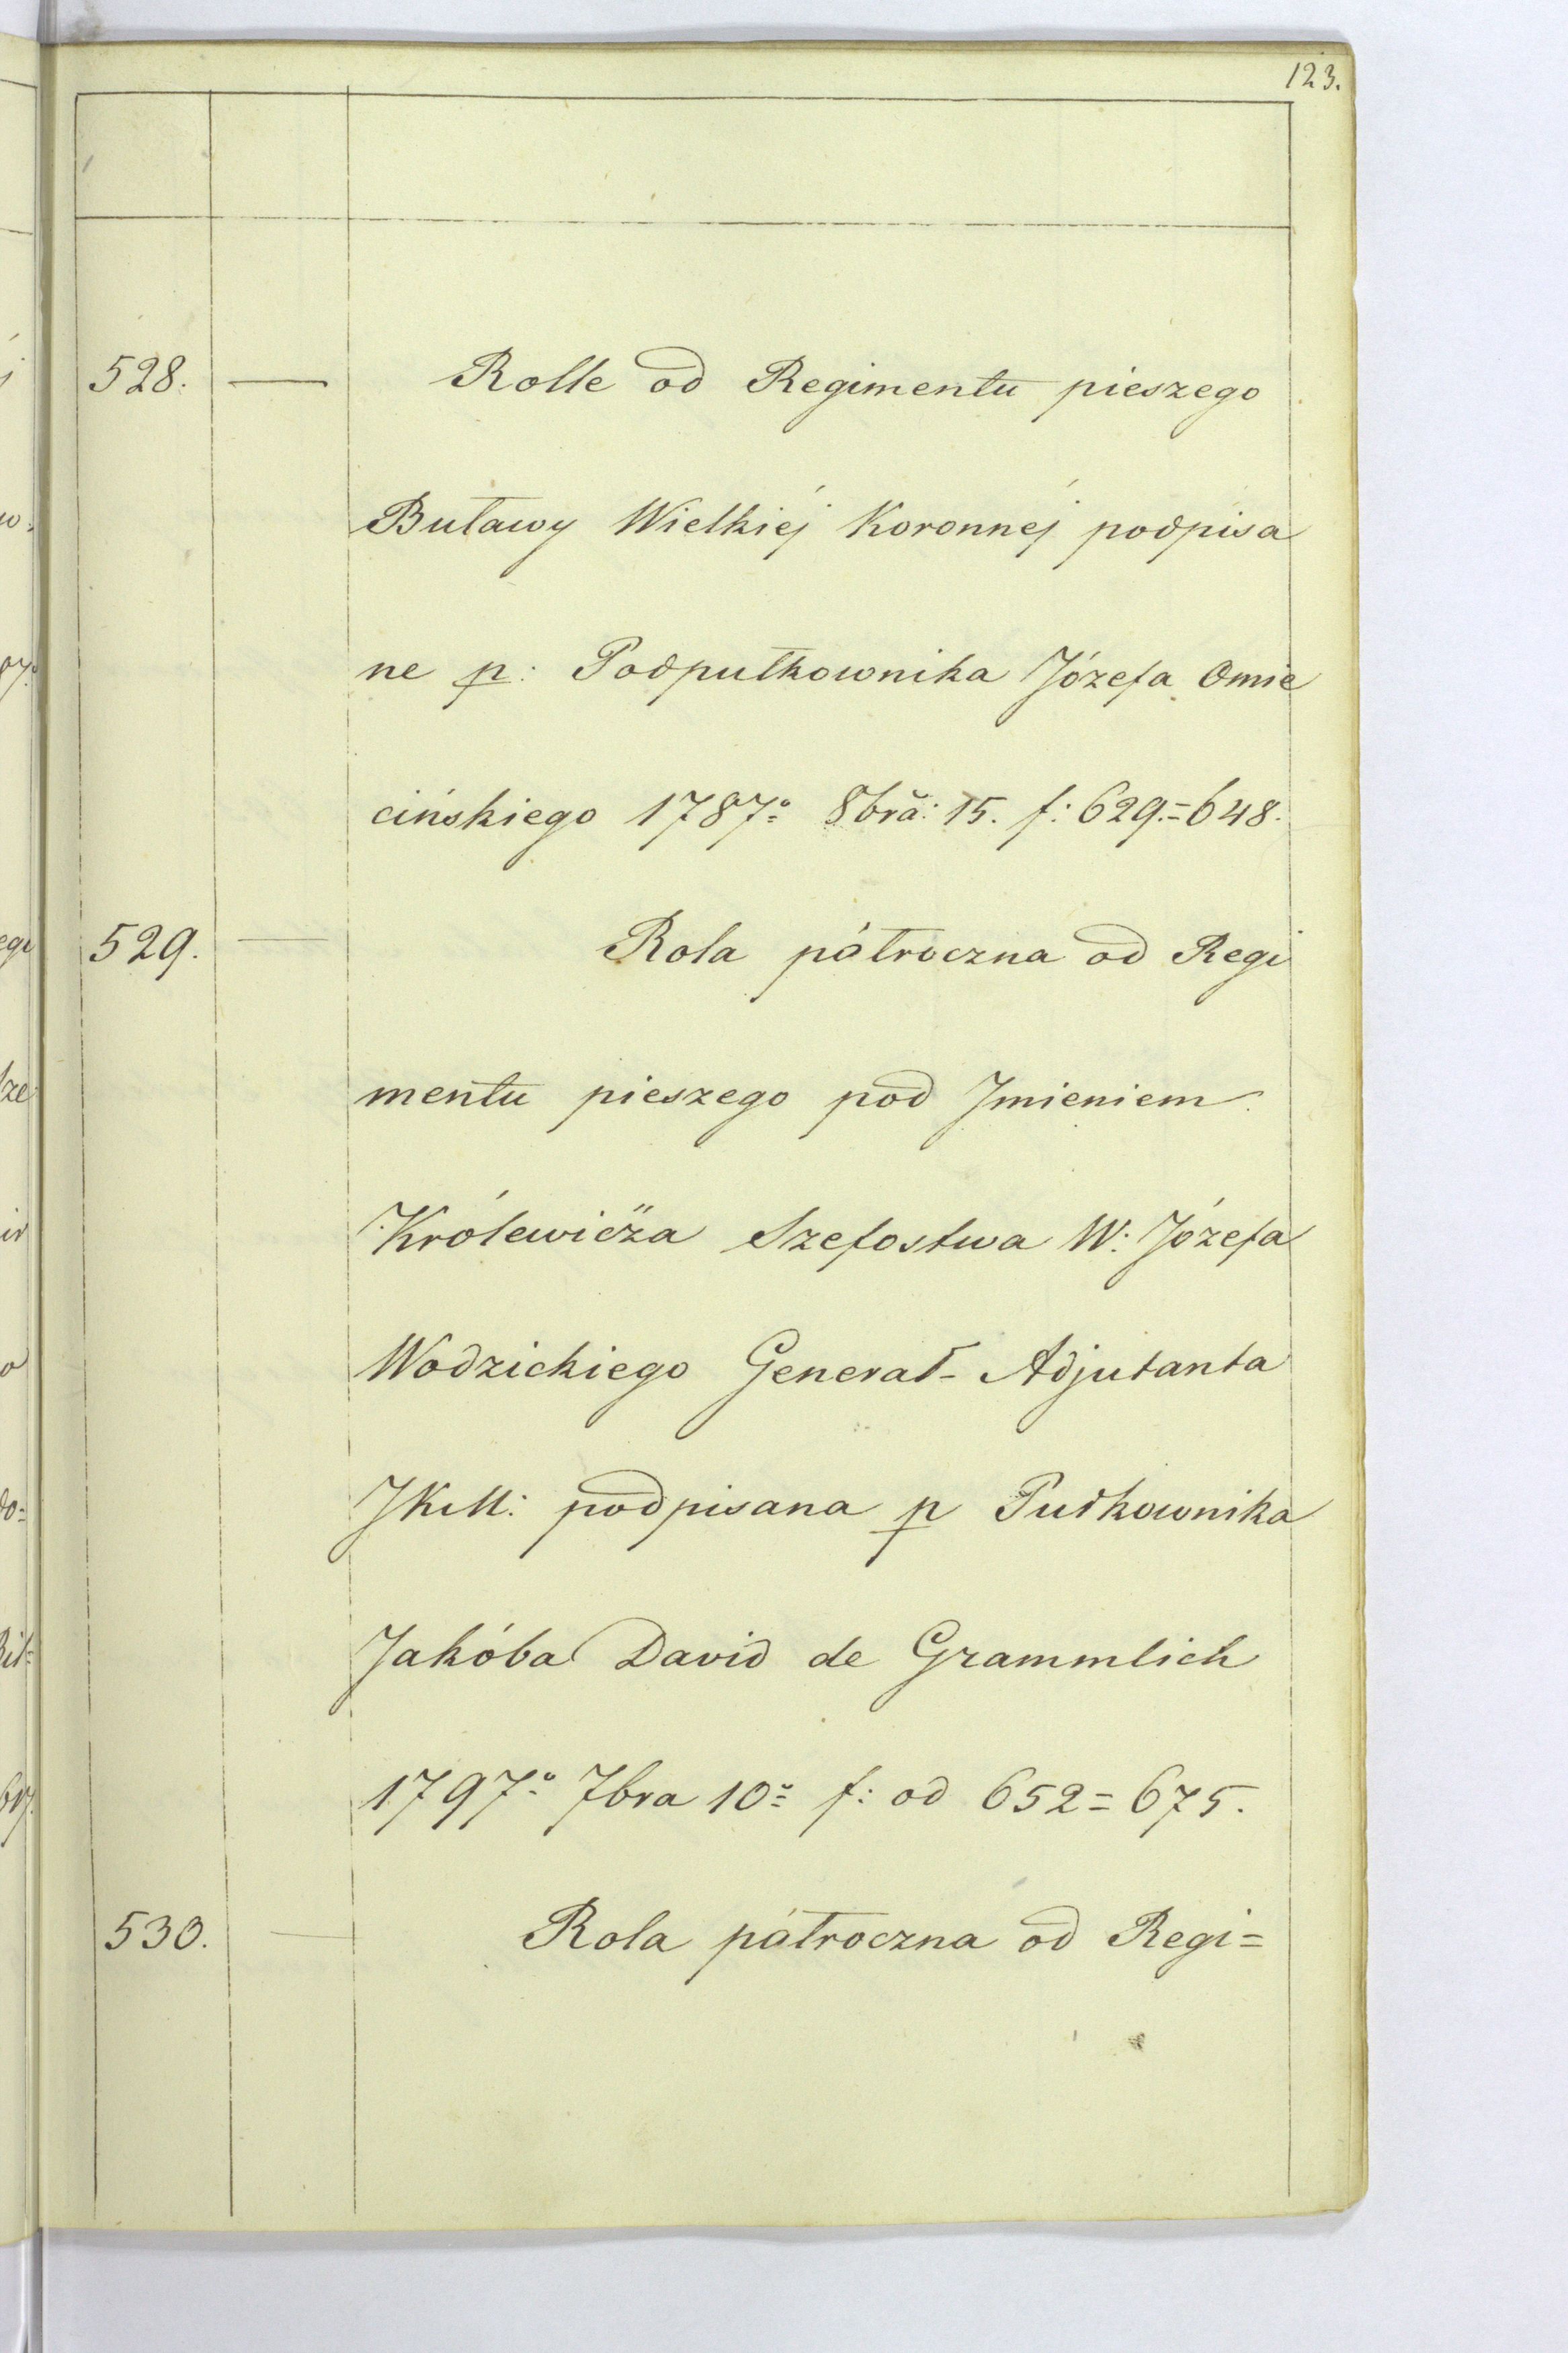 123.
528. — Rolle od Regimentu pieszego
Buławy Wielkiéj Koronnéj podpisa
ne p: Podpułkownika Józefa Omie
cińskiego 1787º 8bră: 15. f: 629.=648.
529. — Rola półroczna od Regi
mentu pieszego pod Jmieniem
Królewicza Szefostwa W: Józefa
Wodzickiego Generał-Adjutanta
JKM: podpisana p Pułkownika
Jakóba David de Grammlich
1797º 7bra 10º f: od 652=675.
530. — Rola półroczna od Regi=